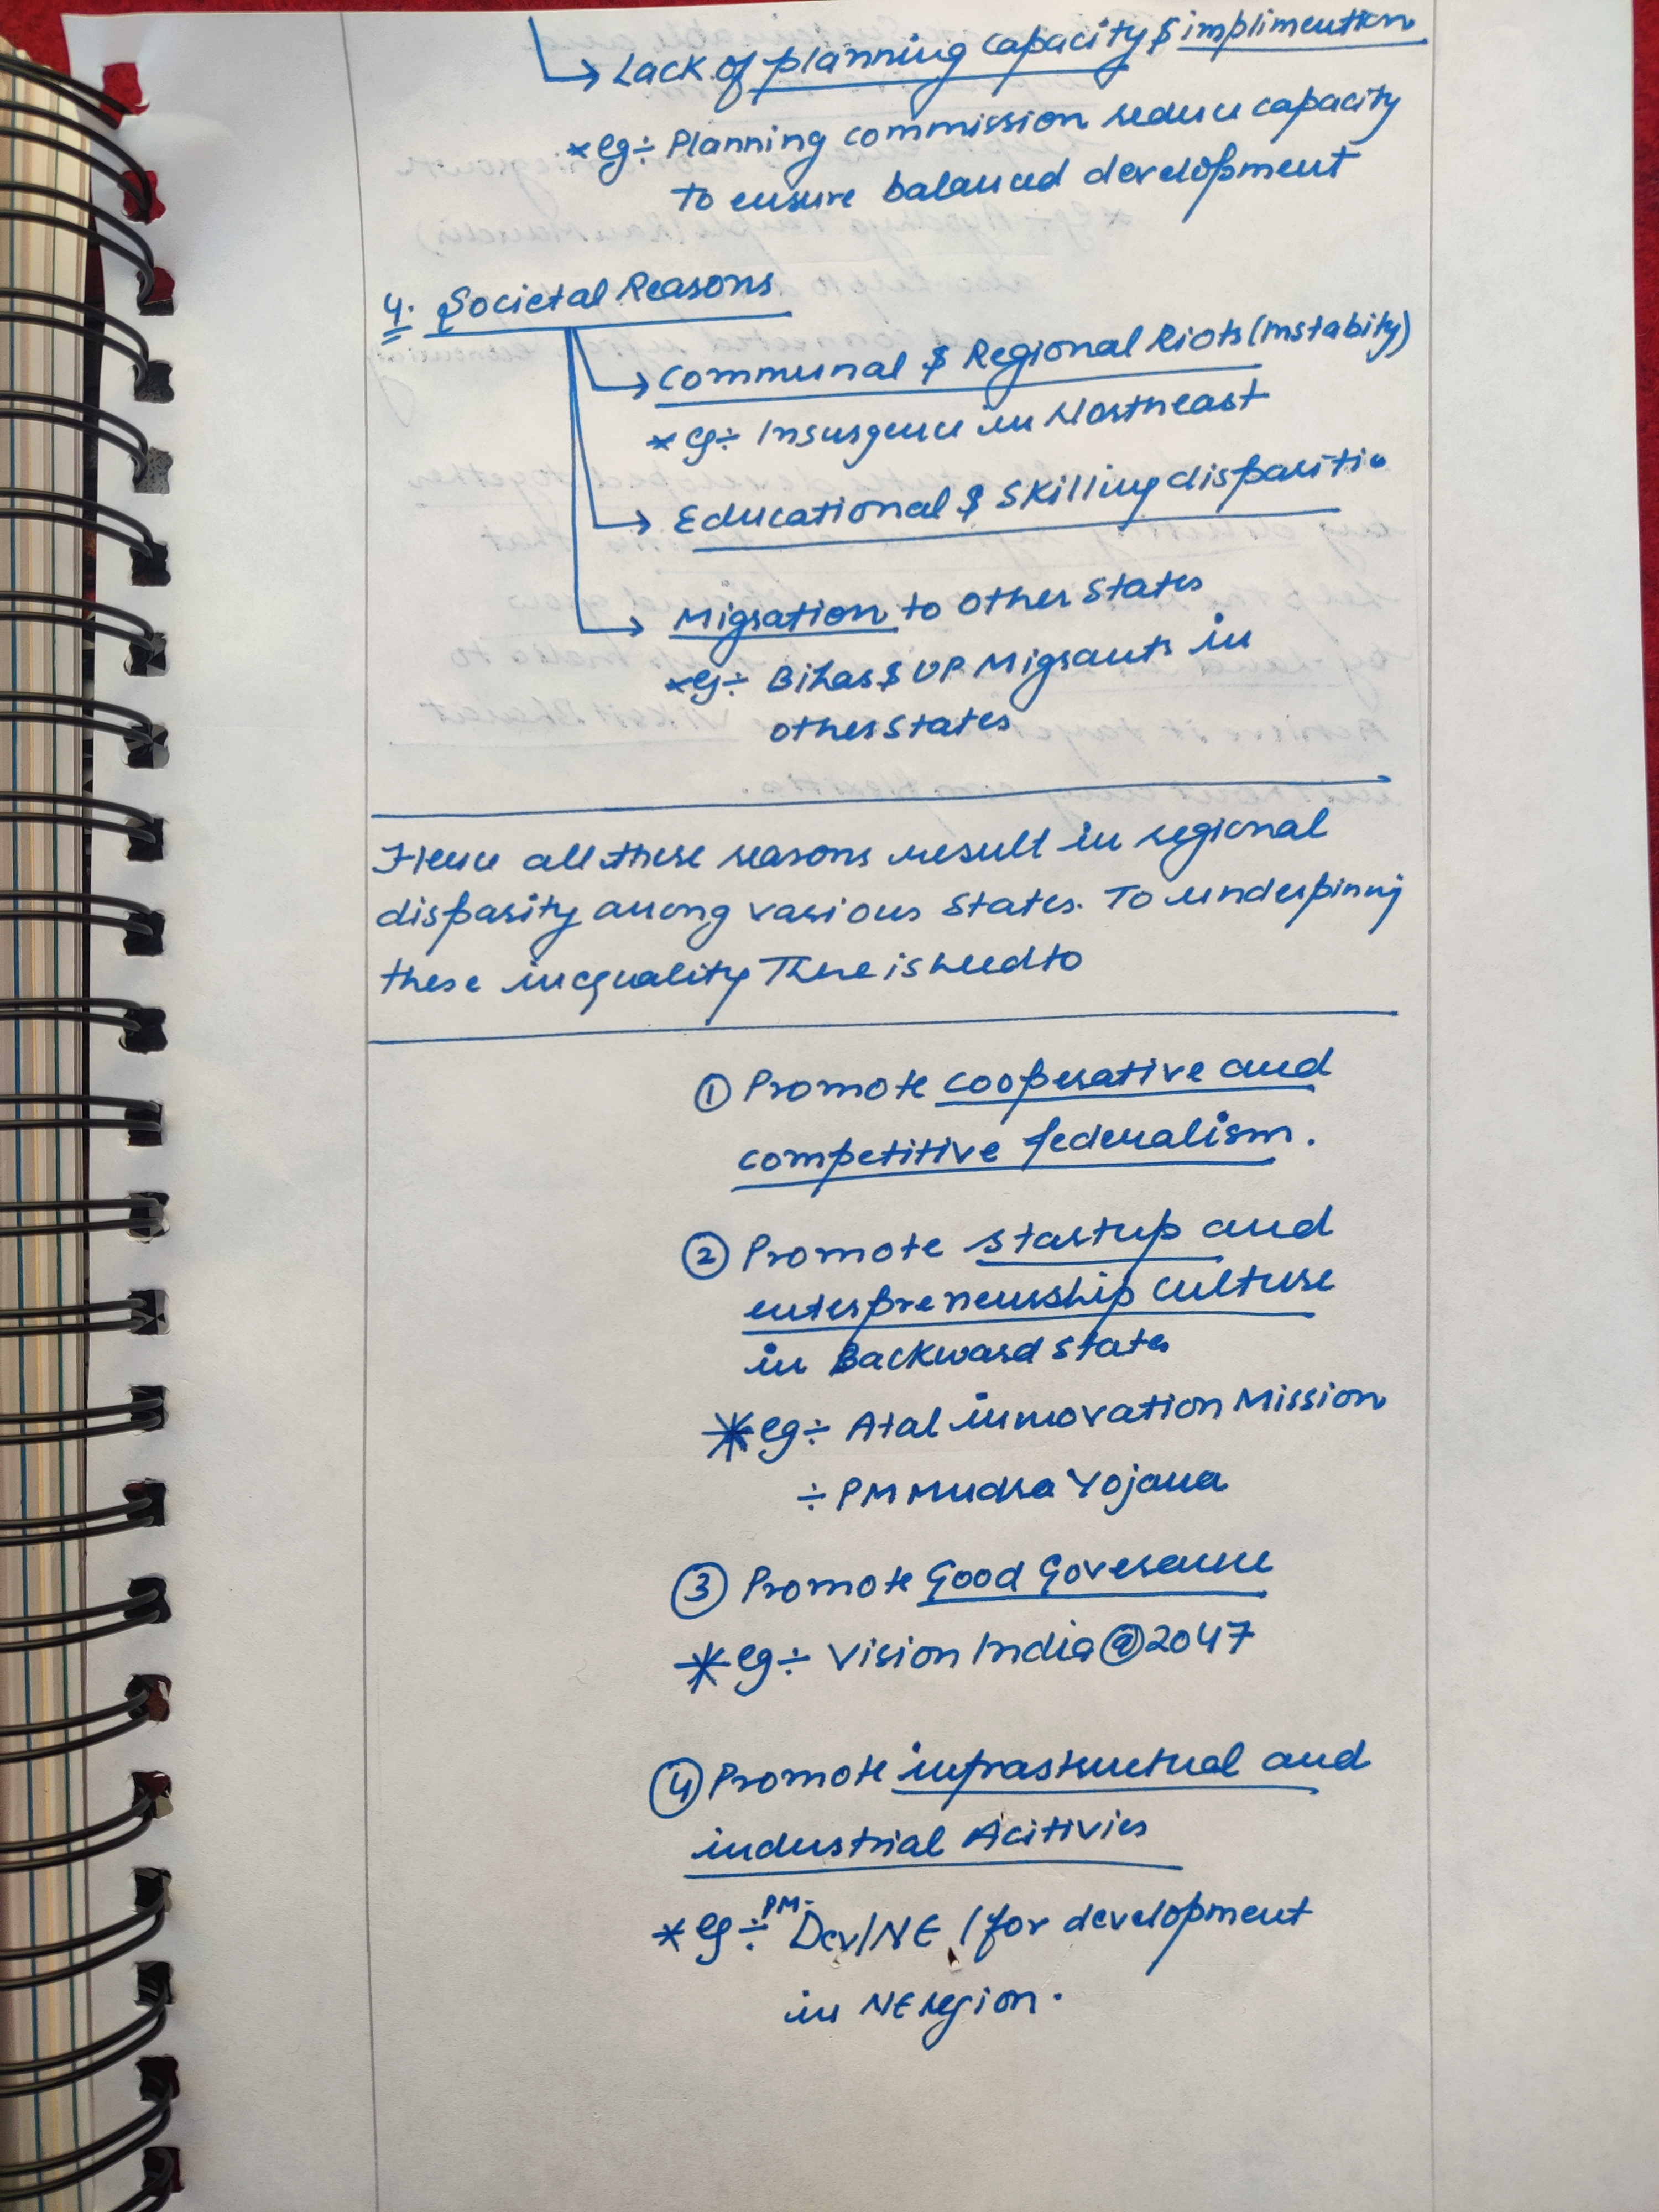 Lack of planning capacity & implimention
* eg÷ Planning commission reduce capacity
to ensure balanced development
4. Societal Reasons
Communal & Regional Riots (instabity)
* eg÷ Insurgence in Northeast
Educational & Skilling disparitie
Migration to other States
* eg÷ Bihar & UP Migrants in
other States
Hence all these reasons result in regional
disparity among various States. To underpinnig
these inequality There is need to
① Promote cooperative and
competitive federalism.
② Promote startup and
enterpreneurship culture
in Backward States
* eg÷ Atal innovation Mission
÷ PM Mudra Yojana
③ Promote Good Goverance
* eg÷ Vision India@2047
④ Promote infrastructual and
industrial Acitivies
* eg÷ PM-DevINE (for development
in NE region.